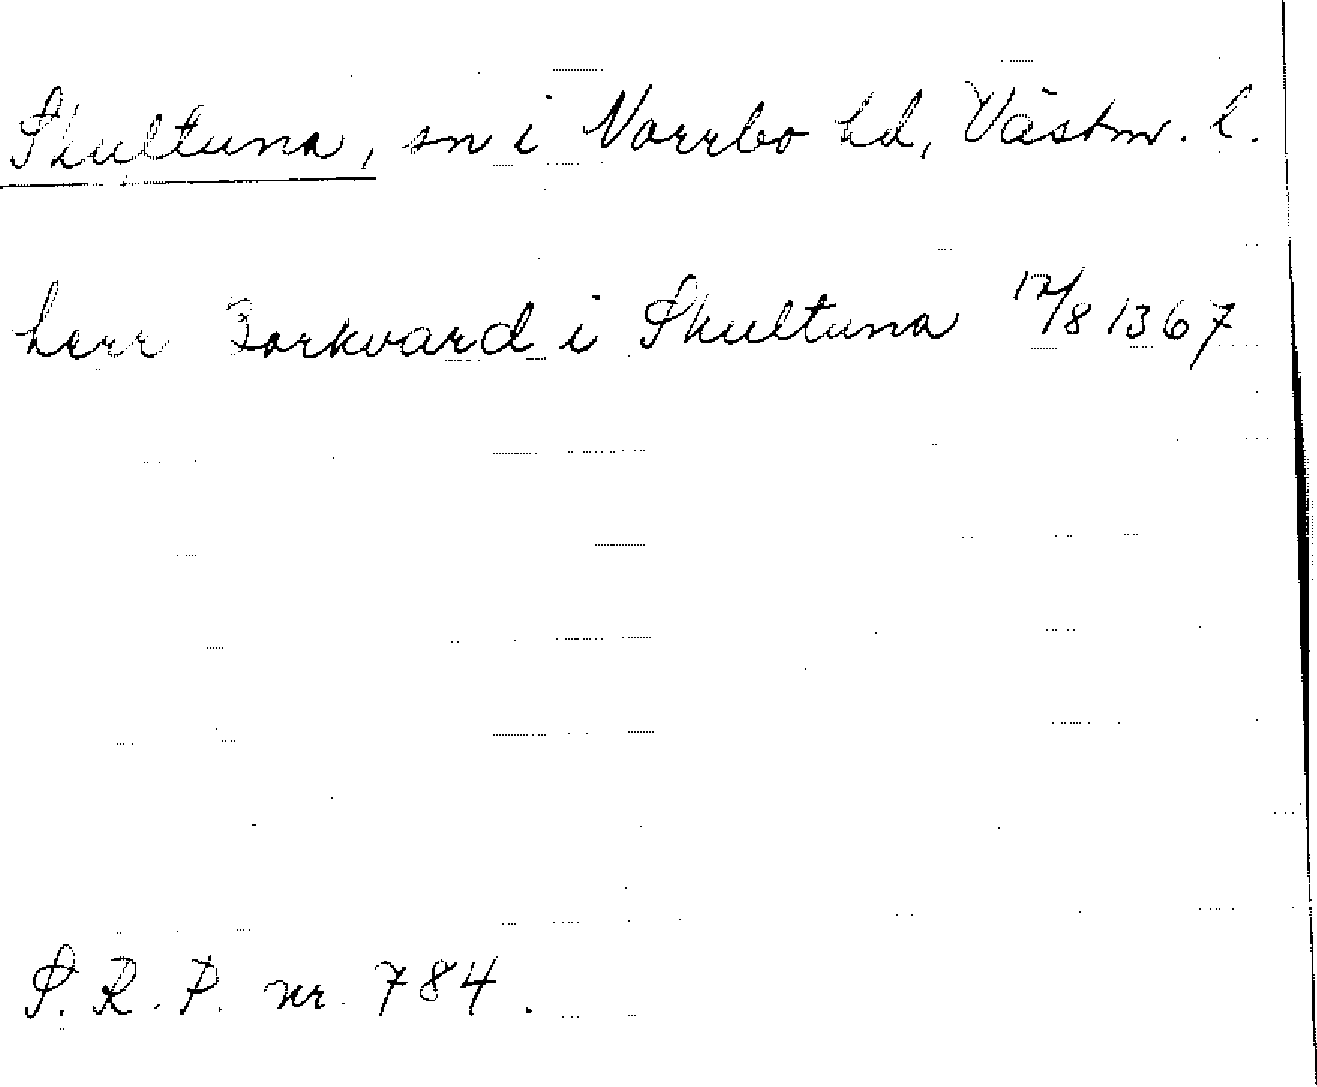 Skultuna, sn i Norrbo hd, Västm. l.
herr Borkvard i Skultuna 12/8 1367
S. R. P. nr. 784.